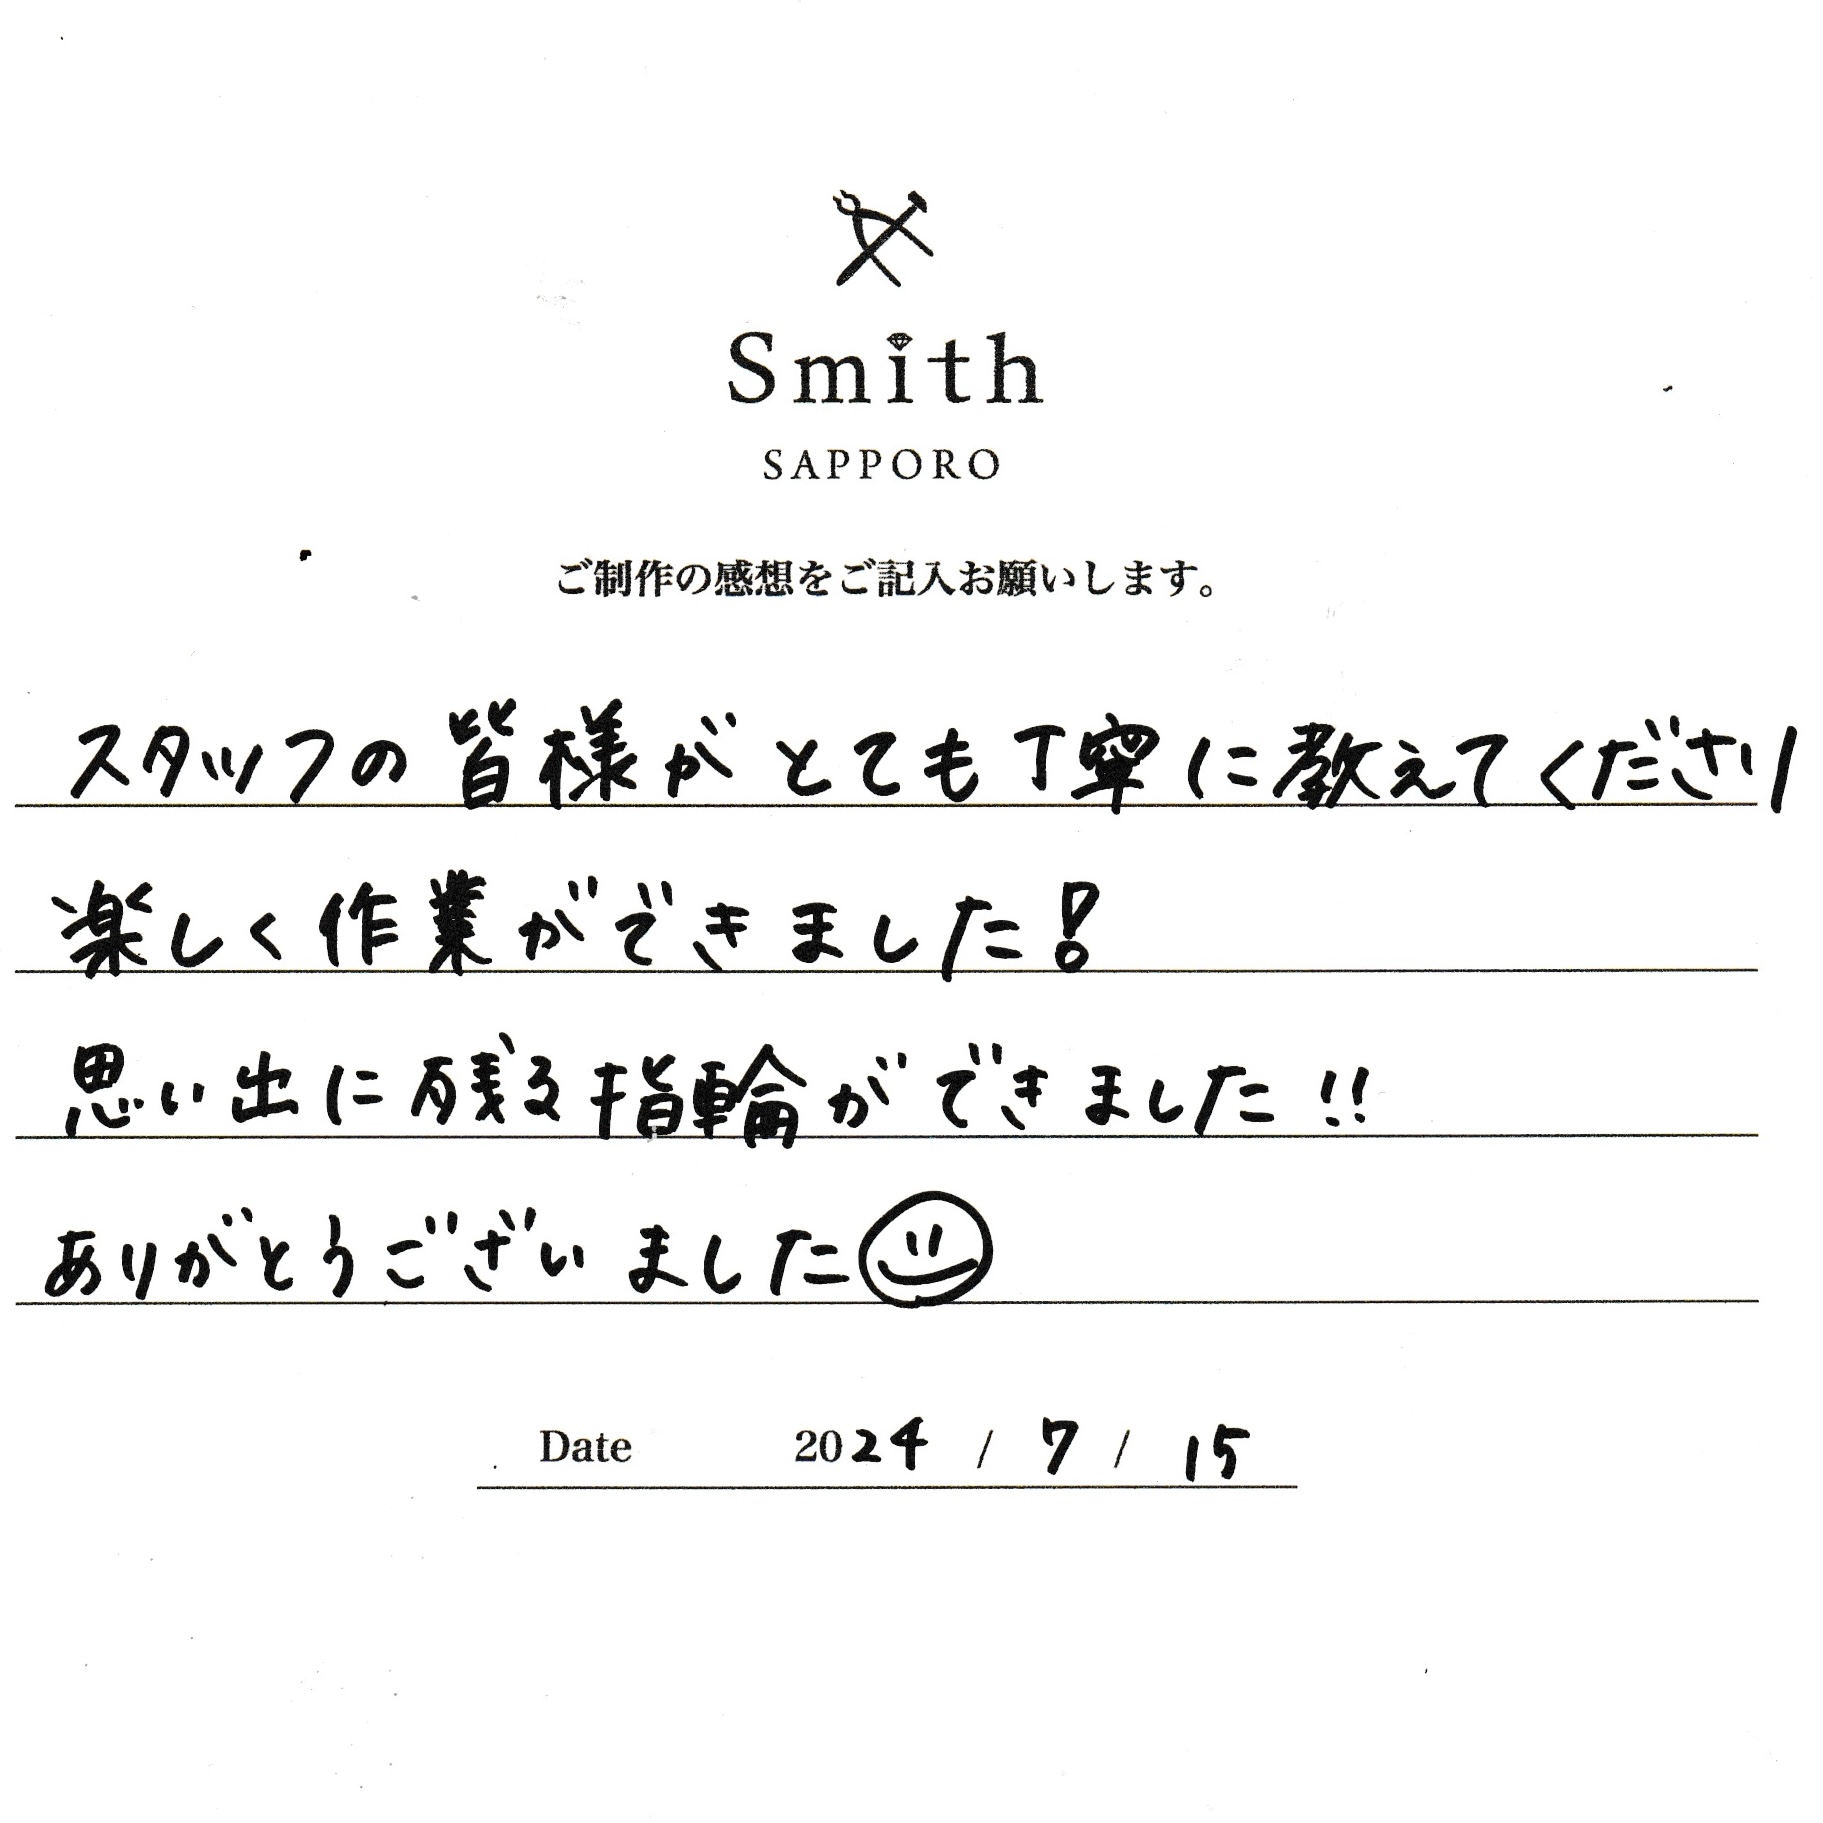 Smith
SAPPORO
ご制作の感想をご記入お願いします。
スタッフの皆様がとても丁寧に教えてくださり
楽しく作業ができました!
思い出に残る指輪ができました!!
ありがとうございました
Date 2024 / 7 / 15